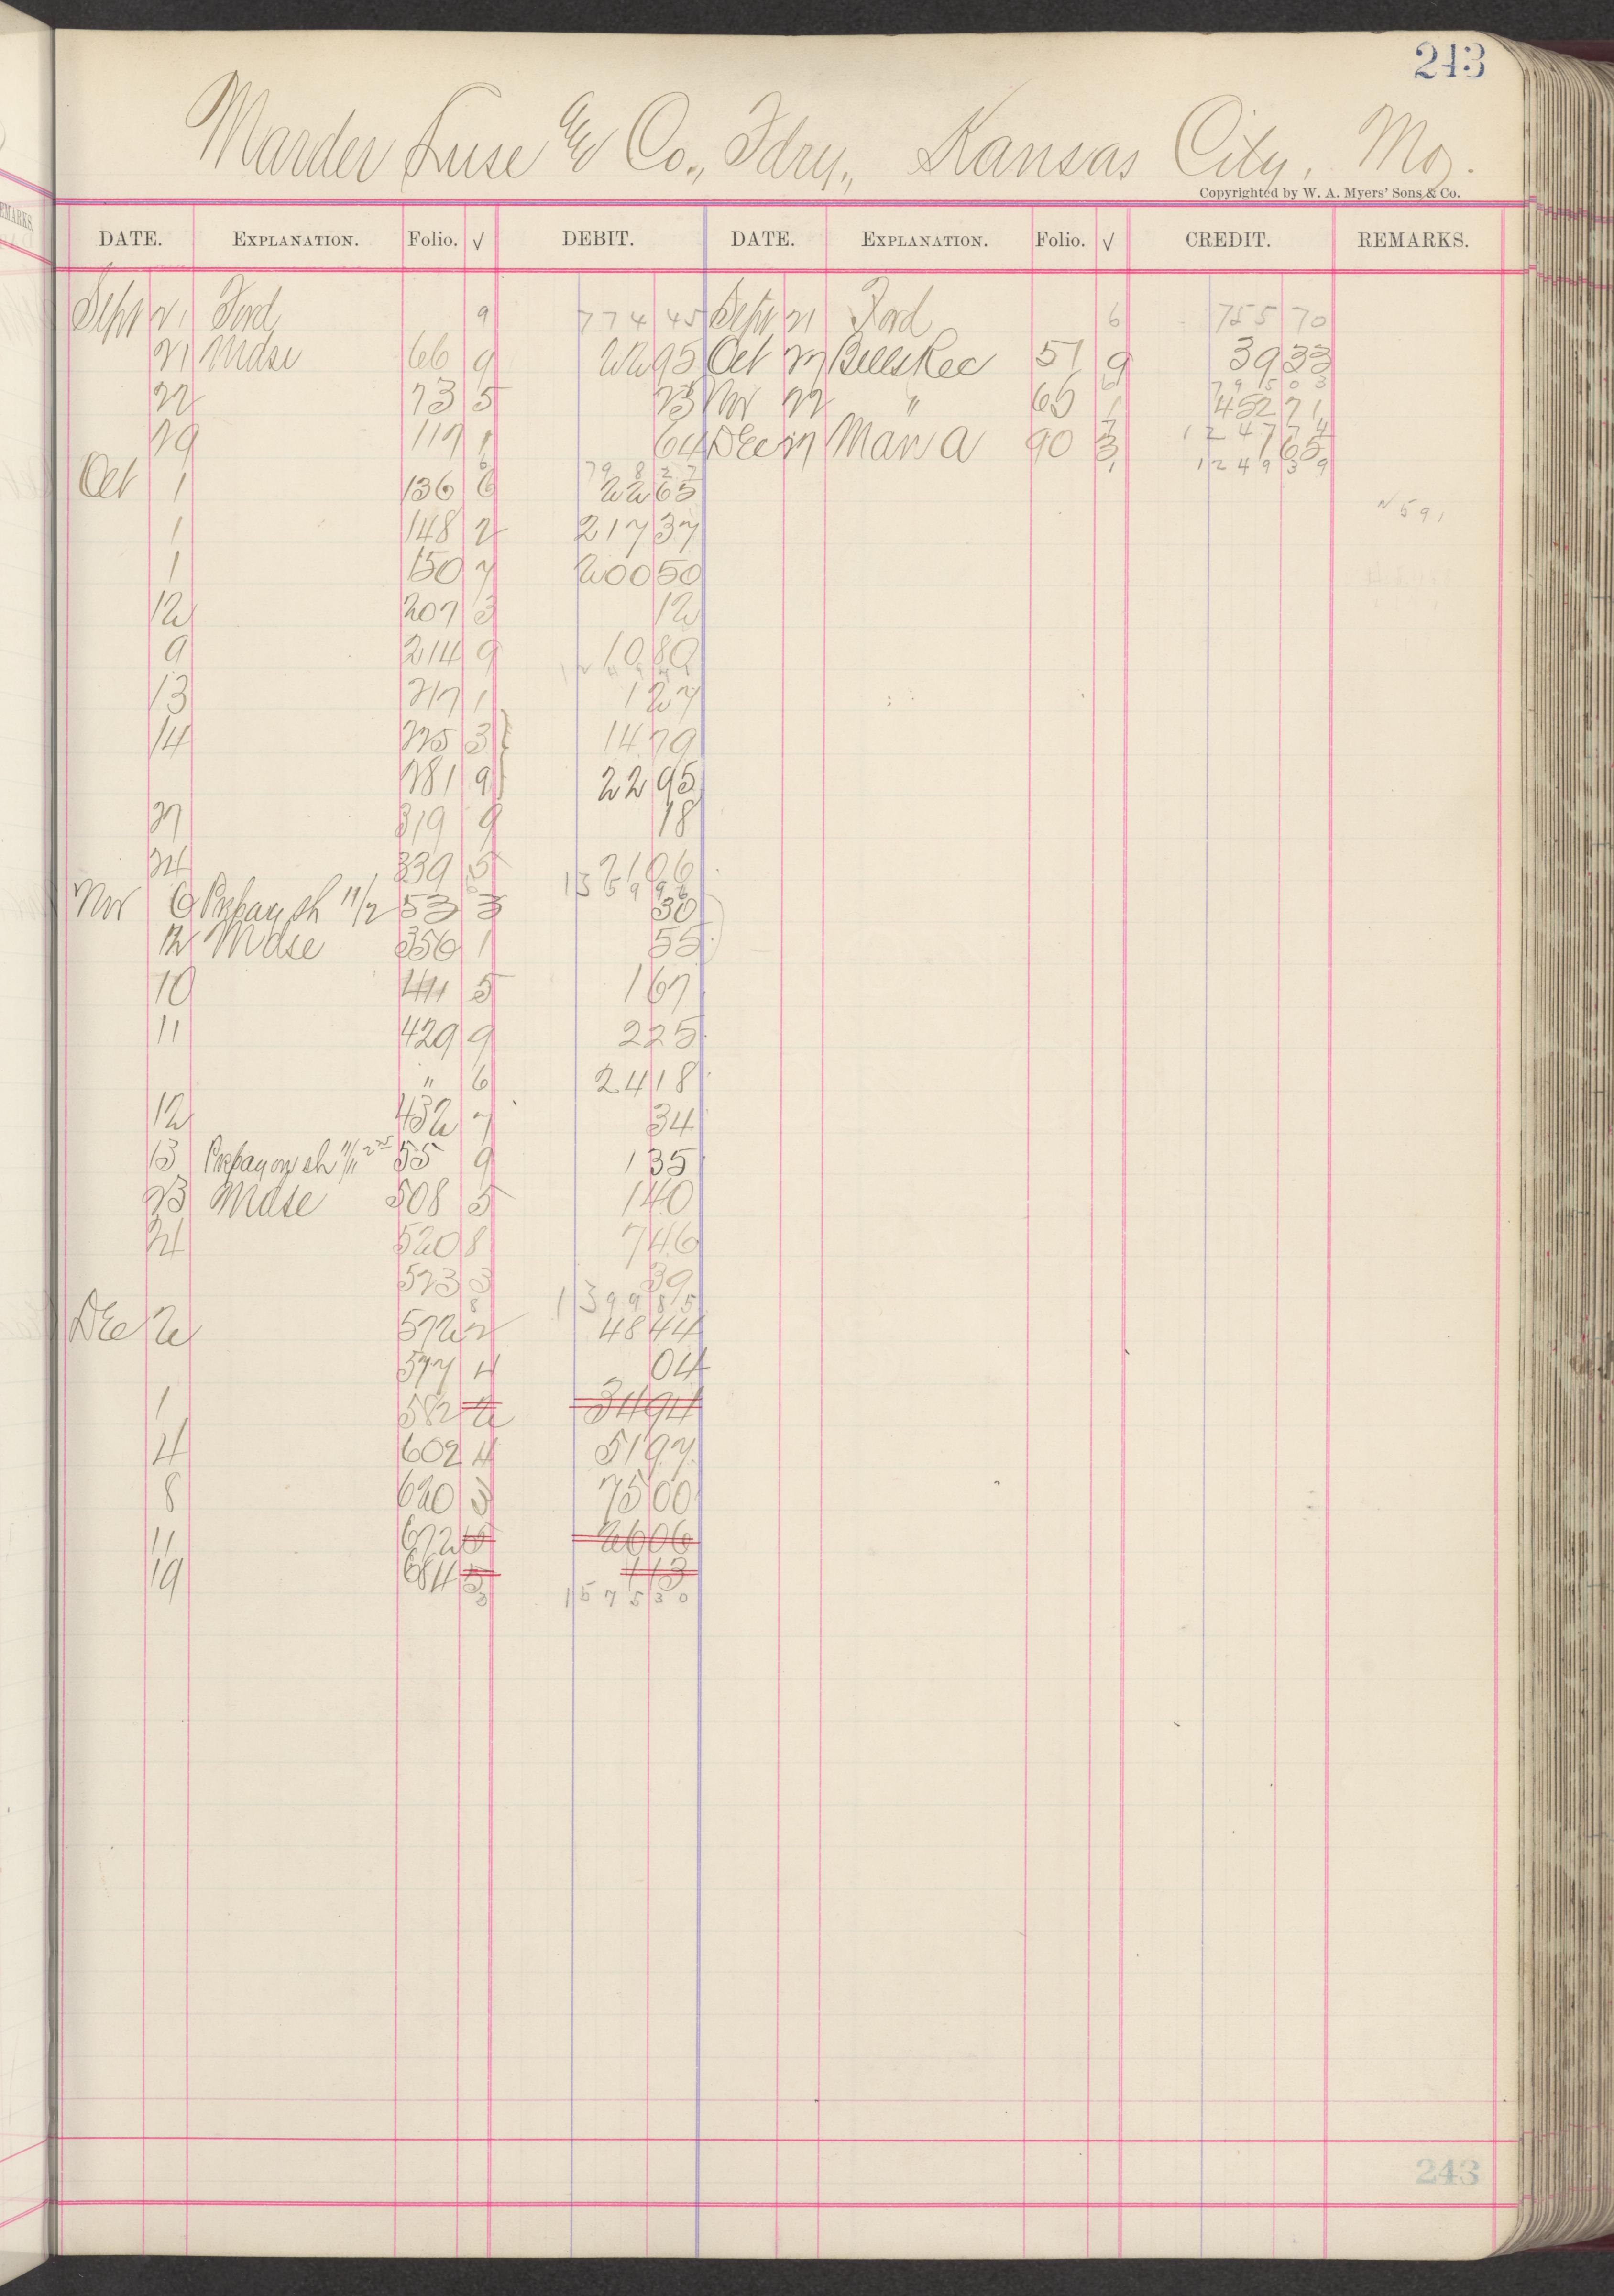 243
Marder Luse & Co., Fdry., Kansas City, Mo.
Copyrighted by W. A. Myers' Sons & Co.
DATE. EXPLANATION. Folio. √ DEBIT. DATE. EXPLANATION. Folio. √ CREDIT. REMARKS.
Sept 21 Ford 9 774 45 Sept 21 Ford 6 755 70
21 Mdse 66 9 22 95 Oct 27 Bills Rec 51 9 39 33
795 03
22 73 5 23 Nov 22 " 65 1 452 71
1247 74
29 117 1 64 Dec 17 90 3 1 65
1249 39
798 27
Oct 1 136 6 22 65
1 148 2 217 37
1 150 7 200 50
12 207 3 12
9 214 9 10 80
13 217 1 1 27
14 225 3 14 79
281 9 22 95
27 319 9 18
24 339 5 21 06
Nov 6 Prepay sh 11/2 53 3 30
12 Mdse 356 1 55
10 411 5 1 67
11 429 9 2 25
" 6 24 18
12 432 7 34
13 Prepay on sh 11/11 2 25 55 9 1 35
23 Mdse 508 5 1 40
24 520 8 7 46
523 3 39
1399 85
Dec 2 572 2 48 44
577 4 04
1 582 2 34 94
4 602 4 51 97
8 620 3 75 00
11 672 5 26 06
19 684 5 1 13
3 1575 30
243